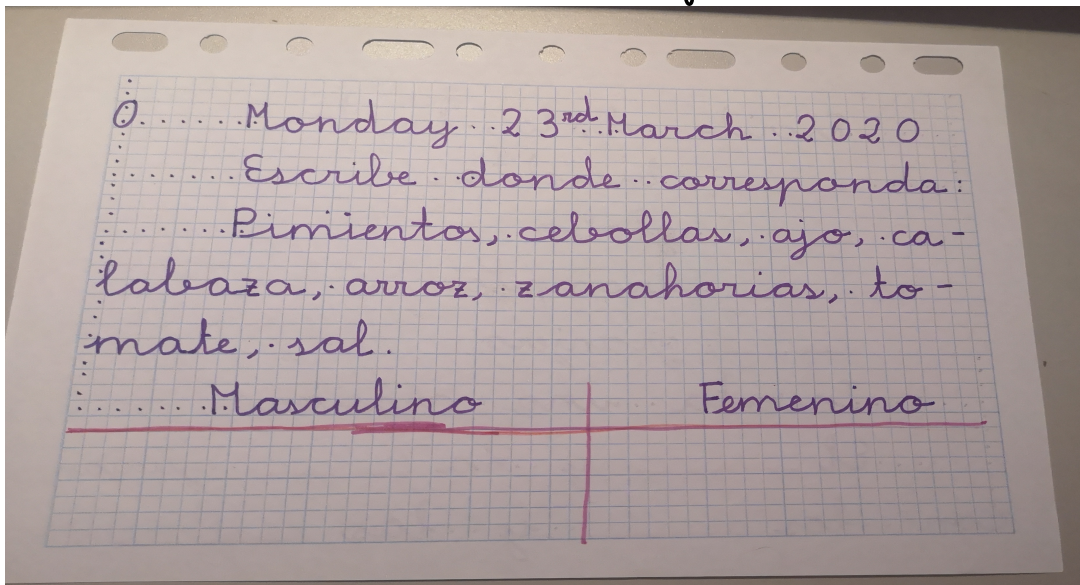 0. . . . . . Monday . . 23rd . . March . . 2020
. . . . . . . Escribe . . donde . . corresponda:
. . . . . . . Pimientos, . cebollas, . ajo, . ca-
labaza, . arroz, . zanahorias, . to-
mate, . sal.
. . . . . . Masculino Femenino